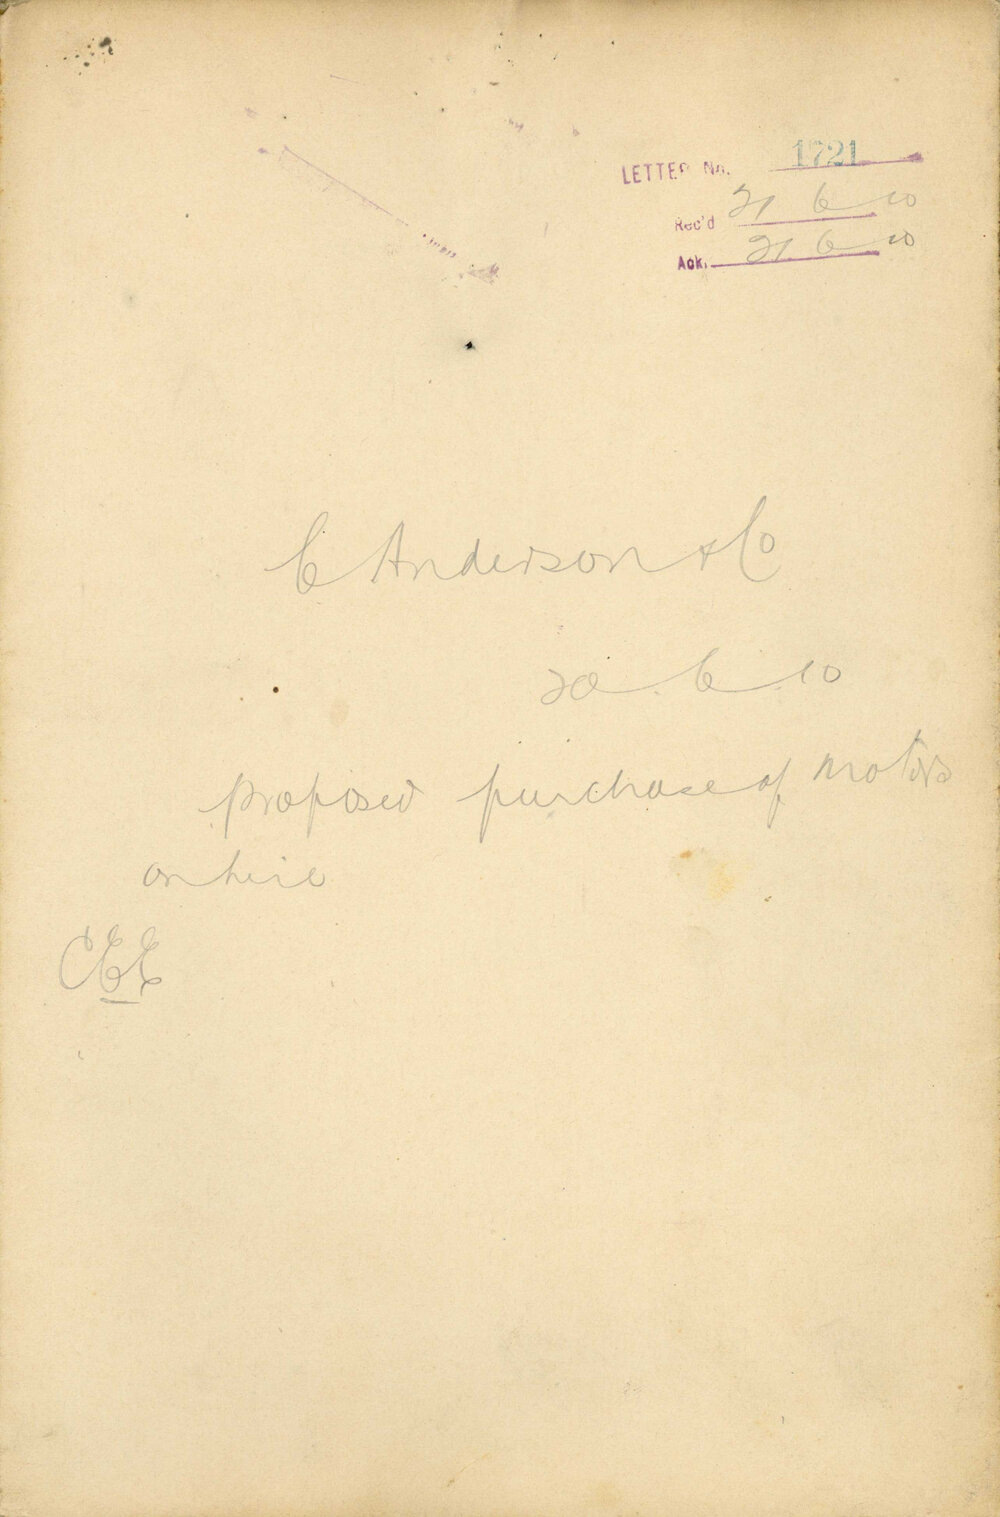 LETTER No. 1721
Rec'd 21 6 10
Ack. 21 6 10
C Anderson & Co
20. 6. 10
proposed purchase of motors
on hire
CEE